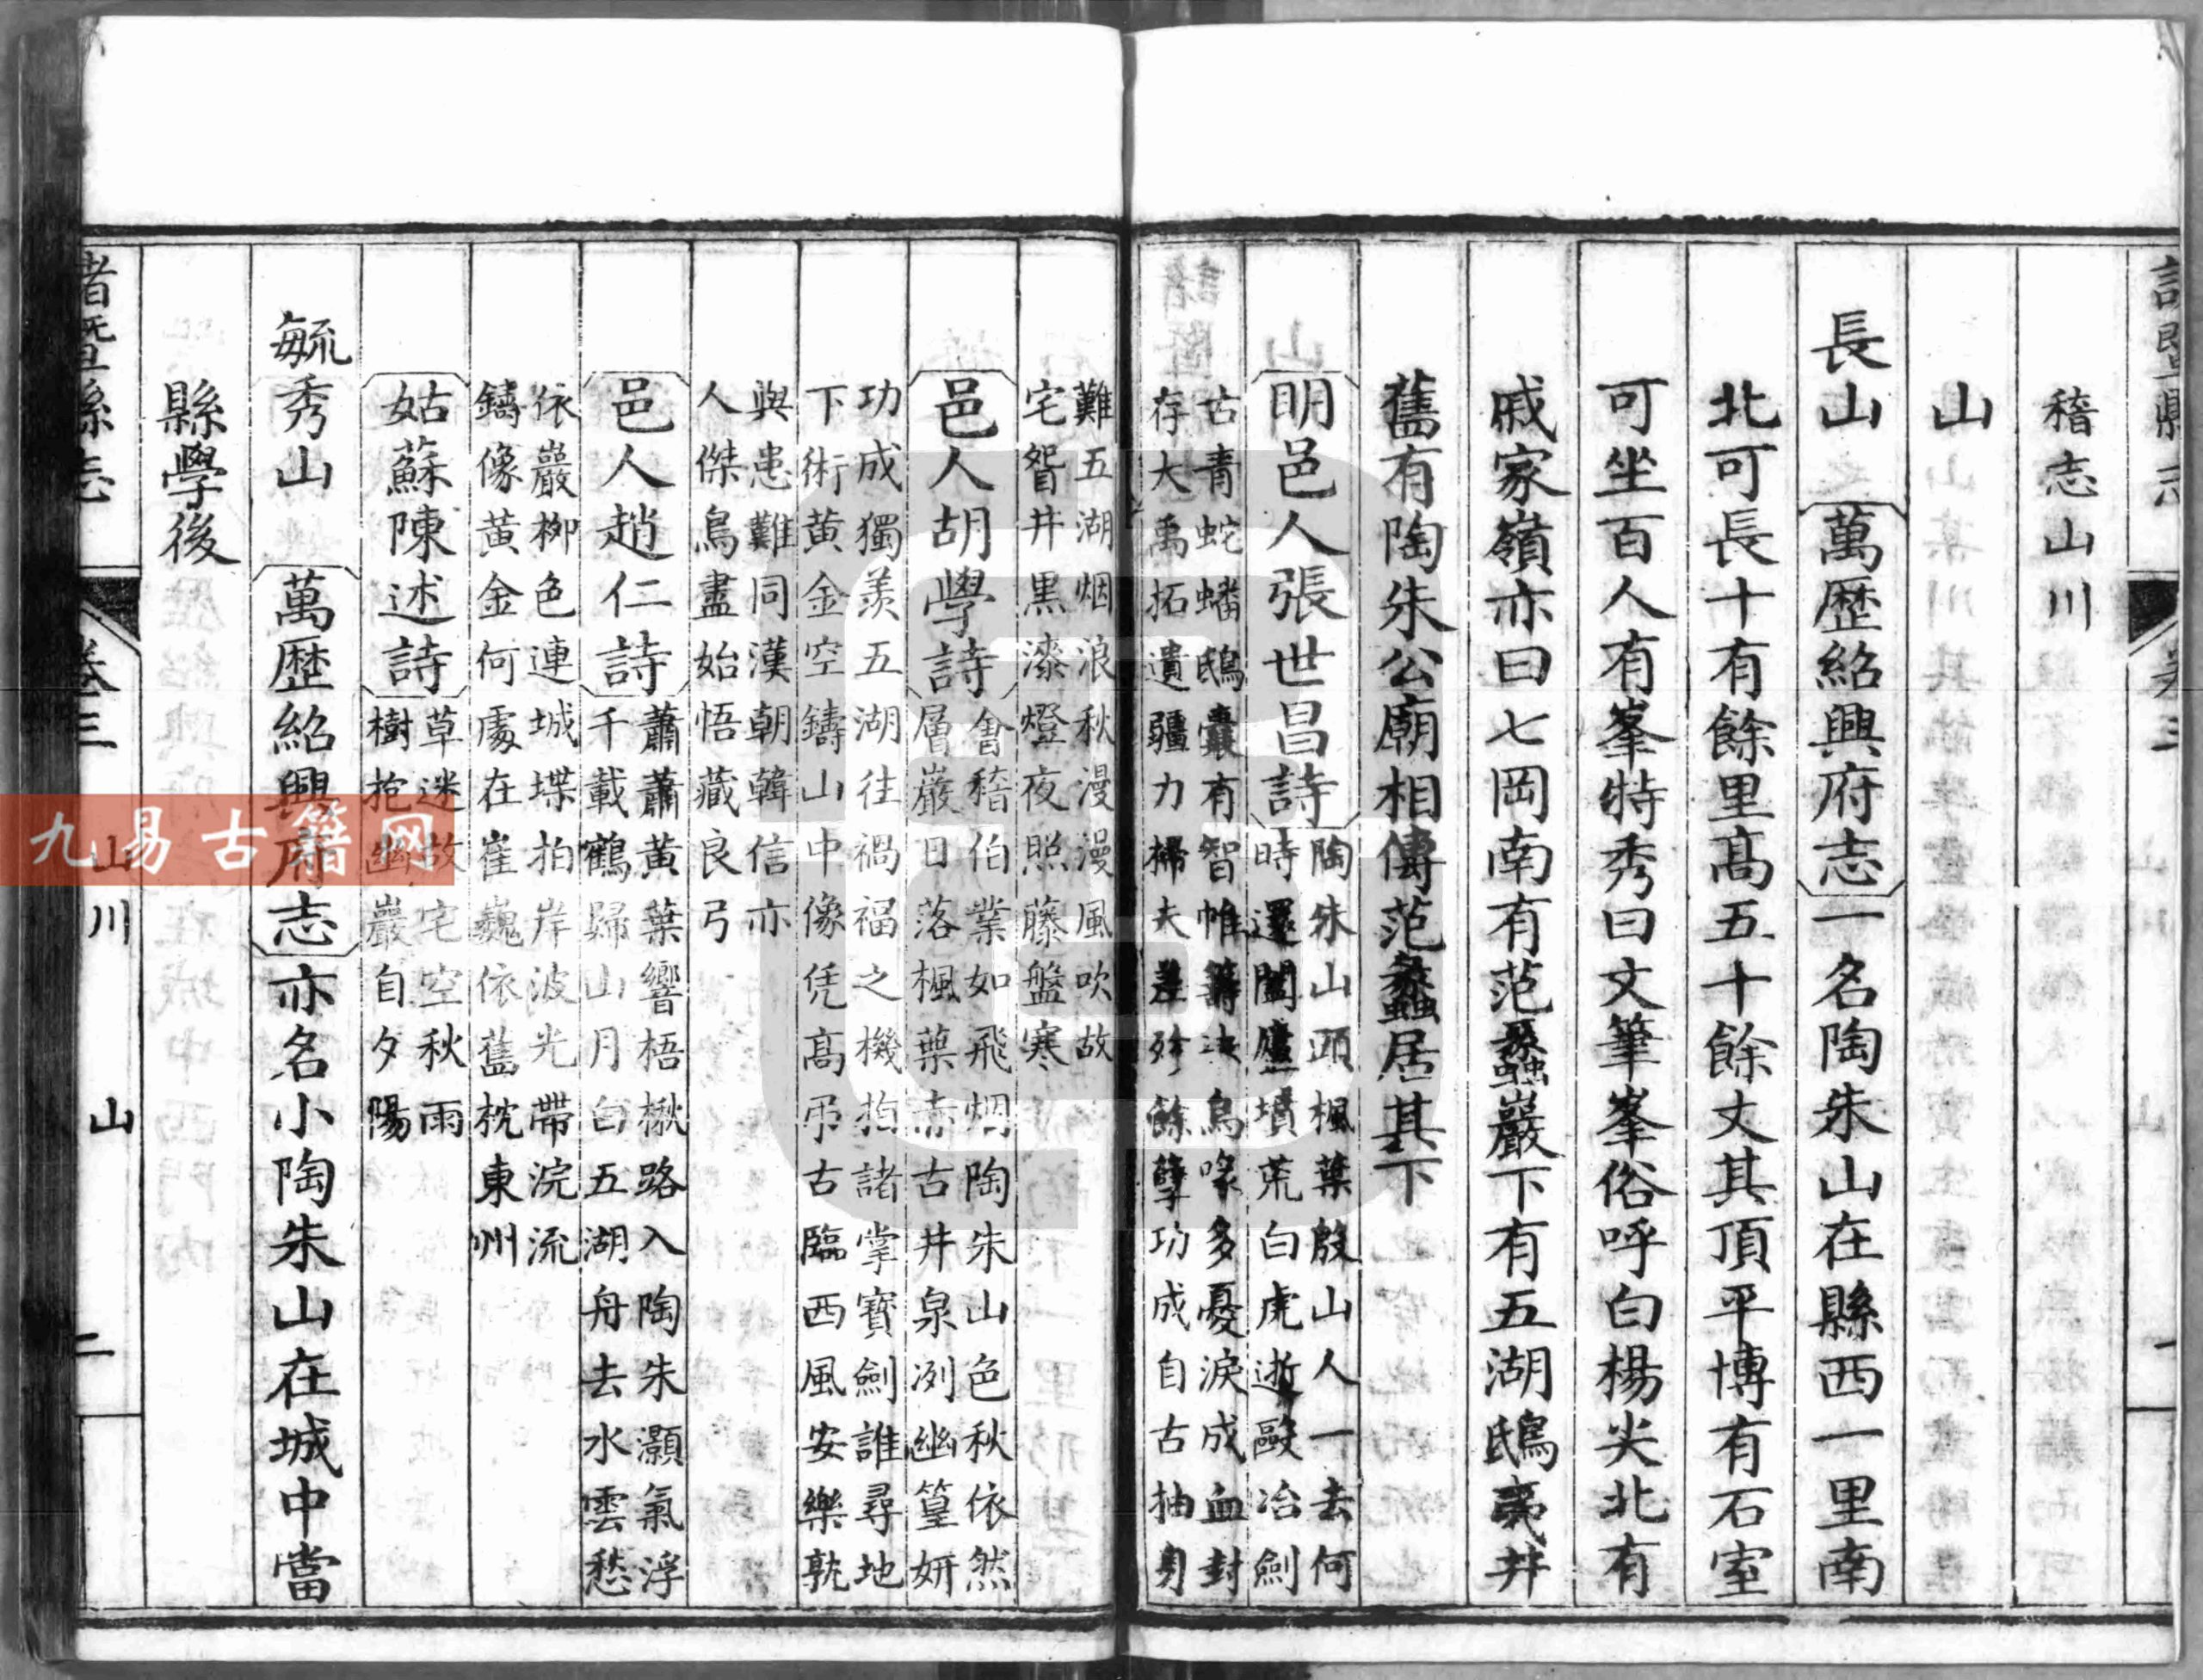 稽志山川
山
長山萬歴紹興府志一名陶朱山在縣西一里南
北可長十有餘里髙五十餘丈其頂平博有石室
可坐百人有峯特秀曰文筆峯俗呼白楊尖北有
戚家嶺亦曰七岡南有范蠡巖下有五湖鴟夷井
舊有陶朱公廟相傳范蠡居其下
明邑人張世昌詩
陶朱山頭楓葉殷山人一去何
時還闔廬墳荒白虎逝歐冶劍
古青蛇蟠鴟囊有智帷籌决鳥喙多憂淚成血封
存大禹拓遺疆力掃夫差殄餘孽功成自古抽身
難五湖烟浪秋漫漫風吹故
宅眢井黒漆燈夜照藤盤寒
邑人胡學詩
會稽伯業如飛烟陶朱山色秋依然
層巖日落楓葉赤古井泉冽幽篁妍
功成獨羡五湖往禍福之機指諸掌寳劍誰尋地
下術黄金空鑄山中像凭髙弔古臨西風安樂孰
與患難同漢朝韓信亦
人傑鳥盡始悟藏良弓
邑人趙仁詩
蕭蕭黄葉響梧楸路入陶朱灝氣浮
千載鶴歸山月白五湖舟去水雲愁
依巖柳色連城堞拍岸波光帶浣流
鑄像黄金何處在崔巍依舊枕東州
姑蘇陳述詩
草迷故宅空秋雨
樹抱幽巖自夕陽
毓秀山萬歴紹興府志亦名小陶朱山在城中當
縣學後
諸暨縣志 卷三 山川 山 二
九易古籍网